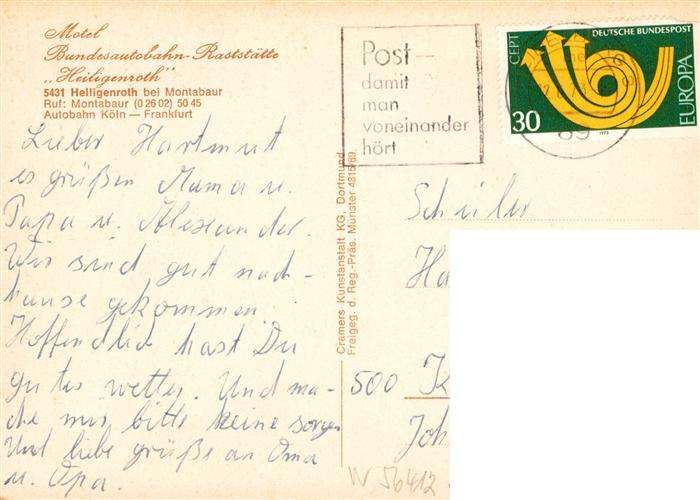 Motel
Bundesautobahn-Raststätte
„Heiligenroth"
5431 Heiligenroth bei Montabaur
Ruf: Montabaur (0 26 02) 50 45
Autobahn Köln — Frankfurt
Post —
damit
man
voneinander
hört
CEPT
DEUTSCHE BUNDESPOST
EUROPA
30
89
Lieber Hartmut
es grüßen Mama u.
Papa u. Alexander.
Wir sind gut nach-
hause gekommen.
Hoffendlich hast Du
gutes wetter. Und ma-
che mir bitte keine sorgen
Und liebe grüße an Oma
u. Opa.
Cramers Kunstanstalt KG, Dortmund
Freigeg. d. Reg.-Präs. Münster 4815/69
Schüler
Ha
500 K
Joh
W 56412